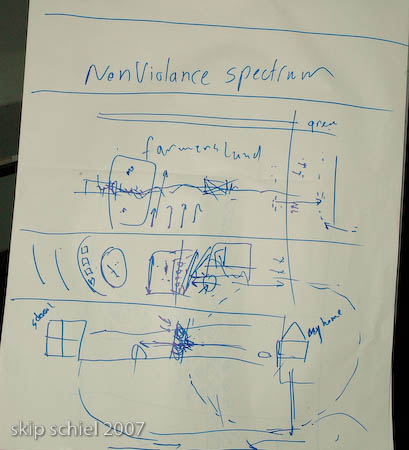 NonViolance spectrum
farmersland
school
my home
skip schiel 2007